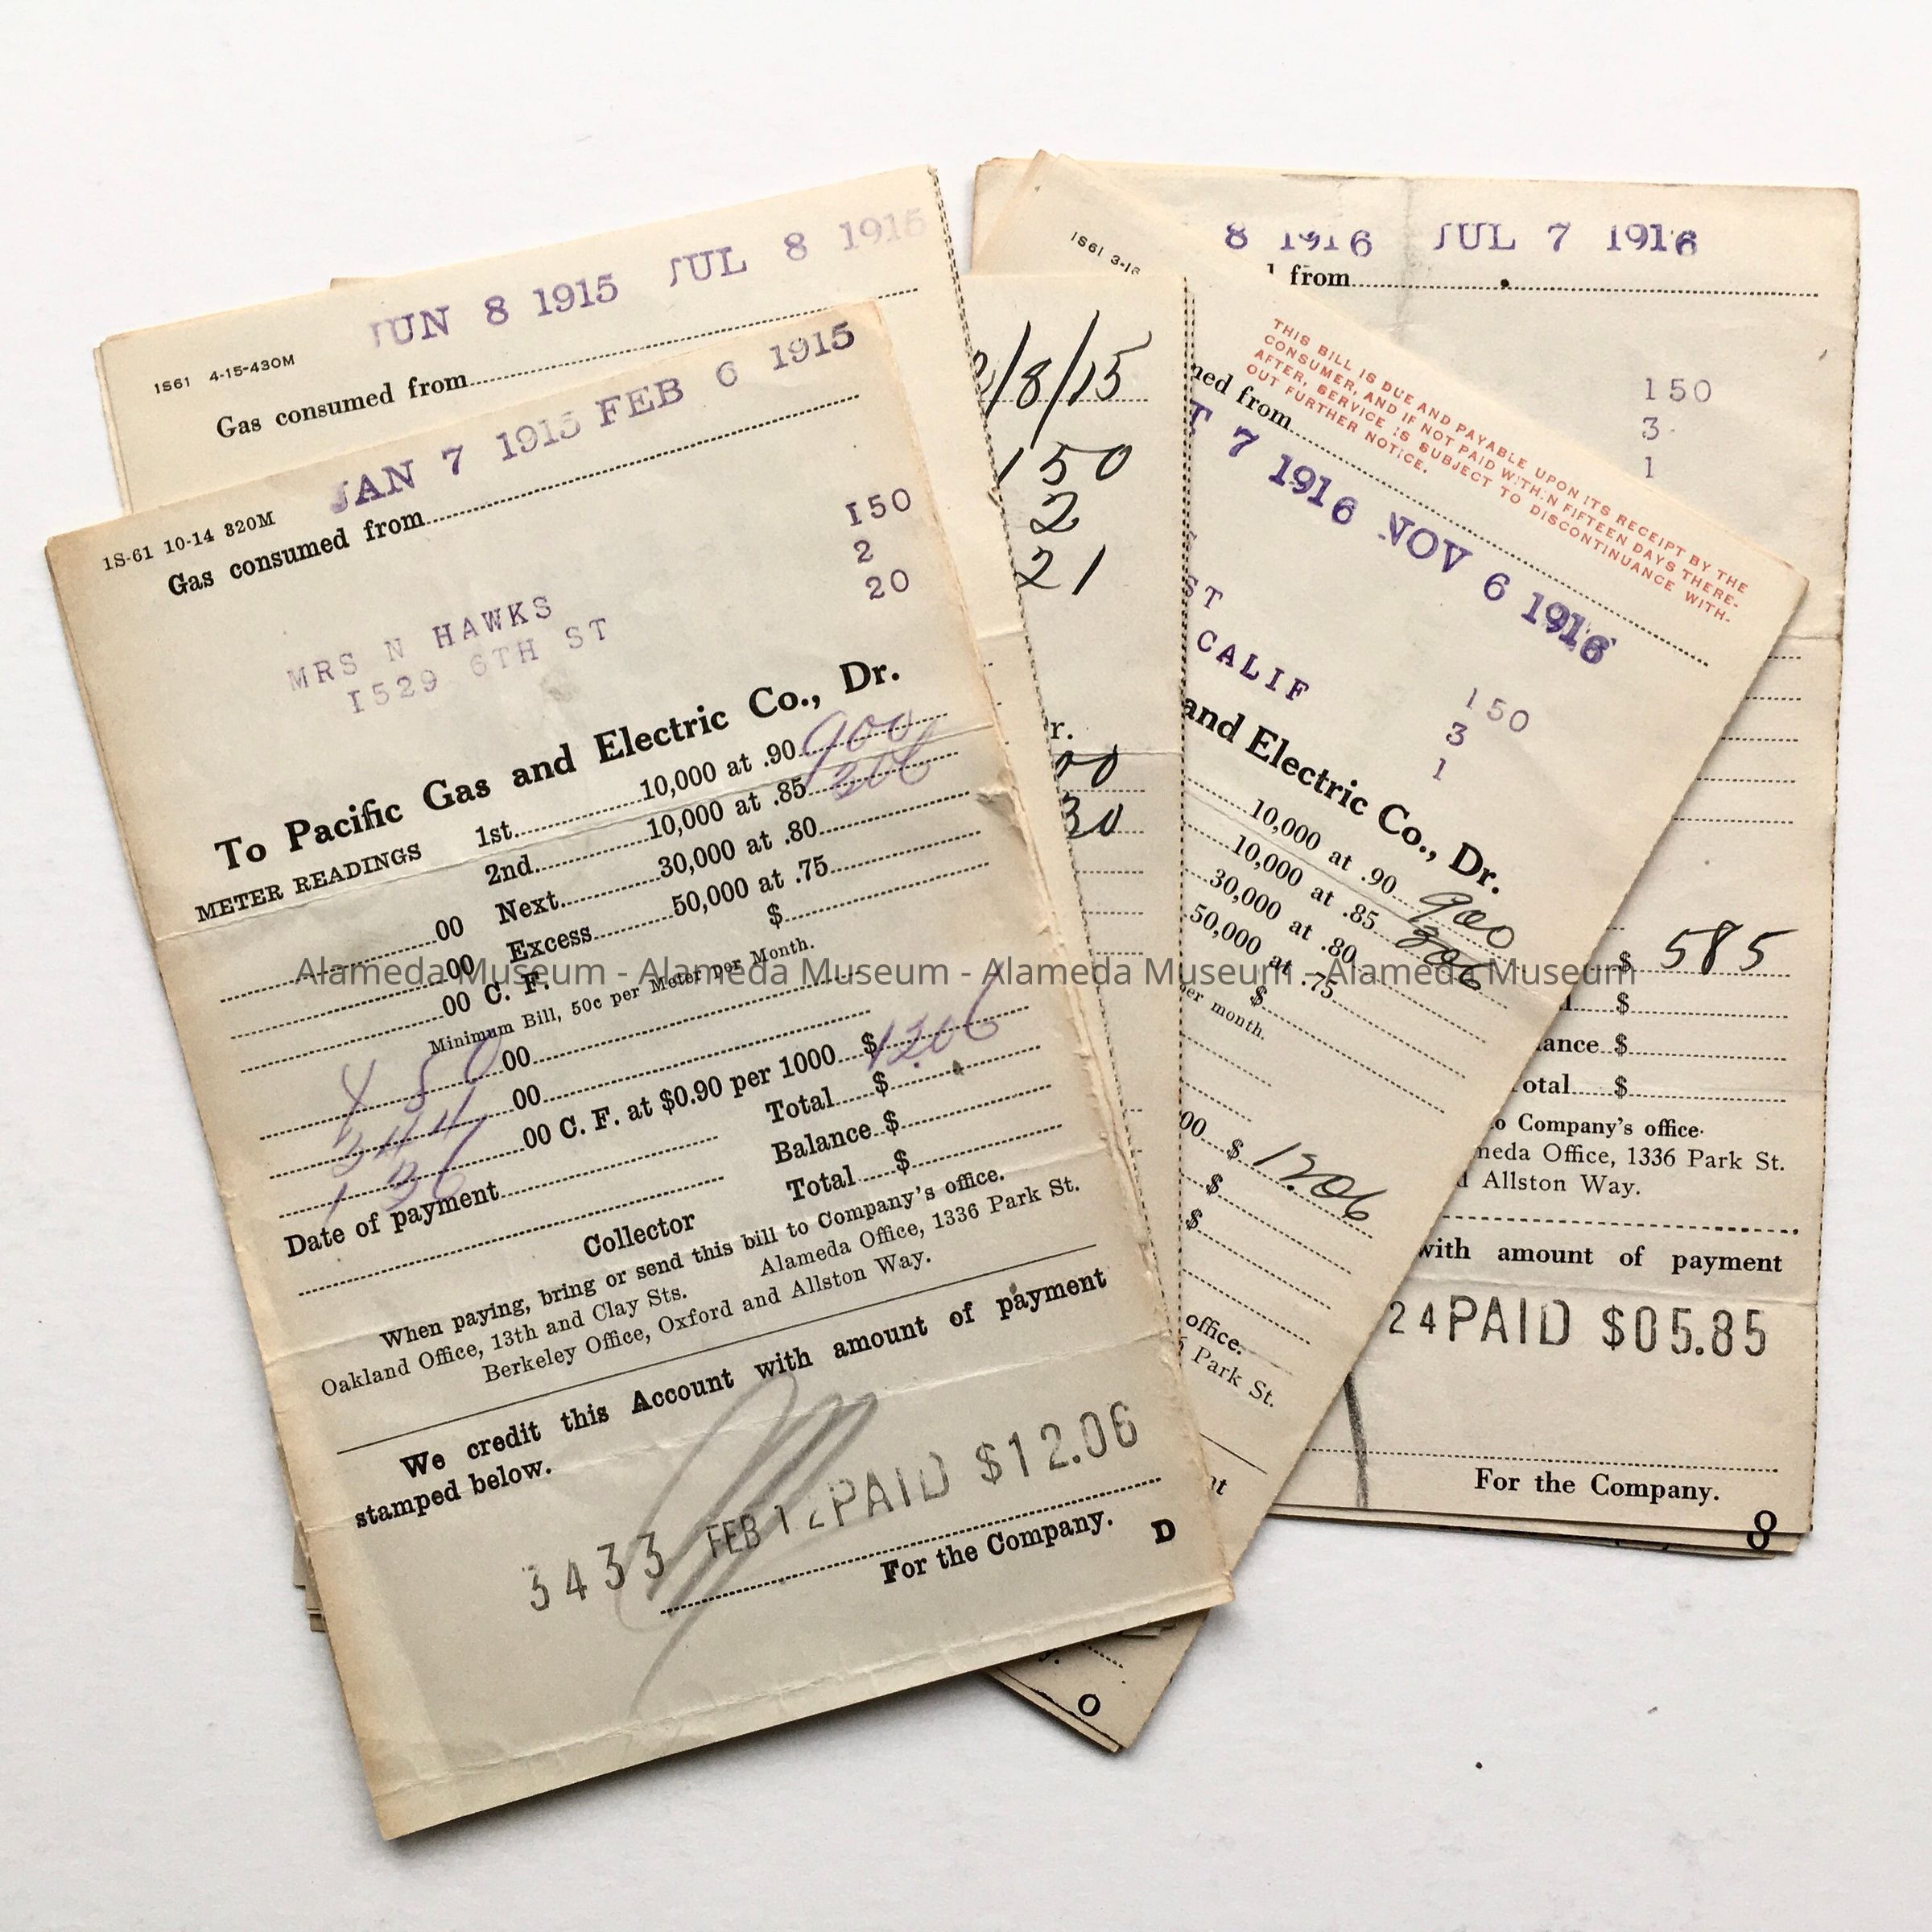 JUN 8 1915 JUL 8 1915
1S61 4-15-430M
Gas consumed from
JAN 7 1915 FEB 6 1915
1S-61 10-14 320M
Gas consumed from
150
2
20
MRS N HAWKS
1529 6TH ST
To Pacific Gas and Electric Co., Dr.
METER READINGS 1st 10,000 at .90 900
2nd 10,000 at .85 306
00 Next 30,000 at .80
00 Excess 50,000 at .75
00 C. F. $
Minimum Bill, 50c per Meter per Month.
00
00
00 C. F. at $0.90 per 1000 $ 1206
Total $
Balance $
Date of payment Total $
Collector
When paying, bring or send this bill to Company's office.
Oakland Office, 13th and Clay Sts. Alameda Office, 1336 Park St.
Berkeley Office, Oxford and Allston Way.
We credit this Account with amount of payment
stamped below.
3433 FEB 12 PAID $12.06
For the Company. D
/8/15
150
2
21
r.
00
30
1S61 3-16
THIS BILL IS DUE AND PAYABLE UPON ITS RECEIPT BY THE
CONSUMER, AND IF NOT PAID WITHIN FIFTEEN DAYS THERE-
AFTER, SERVICE IS SUBJECT TO DISCONTINUANCE WITH-
OUT FURTHER NOTICE.
med from
T 7 1916 NOV 6 1916
ST
CALIF
150
3
1
and Electric Co., Dr.
10,000 at .90 900
10,000 at .85 306
30,000 at .80
50,000 at .75
$
per month.
00 $ 1206
$
$
office.
Park St.
nt
O
8 1916 JUL 7 1916
from
150
3
1
$ 585
$
ance $
otal $
to Company's office.
meda Office, 1336 Park St.
d Allston Way.
with amount of payment
24 PAID $05.85
For the Company.
8
Alameda Museum - Alameda Museum - Alameda Museum - Alameda Museum